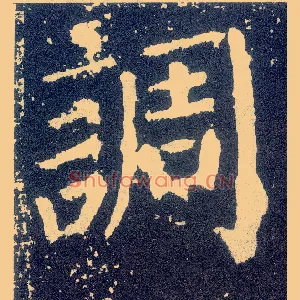 調
Shufawang.CN